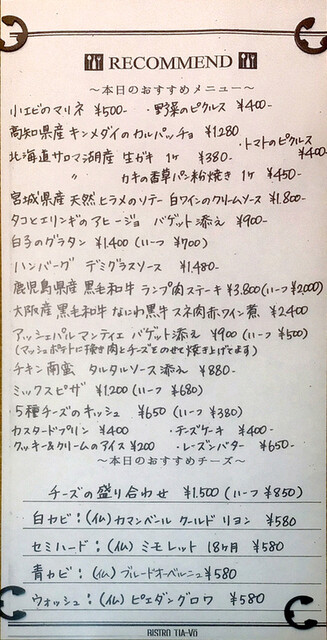 RECOMMEND
～本日のおすすめメニュー～
小エビのマリネ ¥500- ・野菜のピクルス ¥400-
高知県産 キンメダイのカルパッチョ ¥1280
・トマトのピクルス ¥400-
北海道サロマ湖産 生ガキ 1ヶ ¥380-
〃 カキの香草パン粉焼き 1ヶ ¥450-
宮城県産 天然ヒラメのソテー 白ワインのクリームソース ¥1.800-
タコとエリンギのアヒージョ バゲット添え ¥900-
白子のグラタン ¥1.400 (ハーフ ¥700)
ハンバーグ デミグラスソース ¥1.480-
鹿児島県産 黒毛和牛 ランプ肉ステーキ ¥3.800 (ハーフ ¥2,000)
大阪産 黒毛和牛 なにわ黒牛 スネ肉赤ワイン煮 ¥2.400
アッシェパルマンティエ バゲット添え ¥900 (ハーフ ¥500)
(マッシュポテトに挽き肉とチーズをのせて焼き上げてます)
チキン南蛮 タルタルソース添え ¥880-
ミックスピザ ¥1.200 (ハーフ ¥680)
・5種チーズのキッシュ ¥650 (ハーフ ¥380)
カスタードプリン ¥400 ・チーズケーキ ¥400-
・クッキー&クリームのアイス ¥200 ・レーズンバター ¥650-
～本日のおすすめチーズ～
チーズの盛り合わせ ¥1.500 (ハーフ ¥850)
白カビ：(仏) カマンベール クールド リヨン ¥580
セミハード：(仏) ミモレット 18ヶ月 ¥580
青カビ：(仏) ブルードオーベルニュ ¥580
ウォッシュ：(仏) ピエダングロワ ¥580
BISTRO TIA-Vo